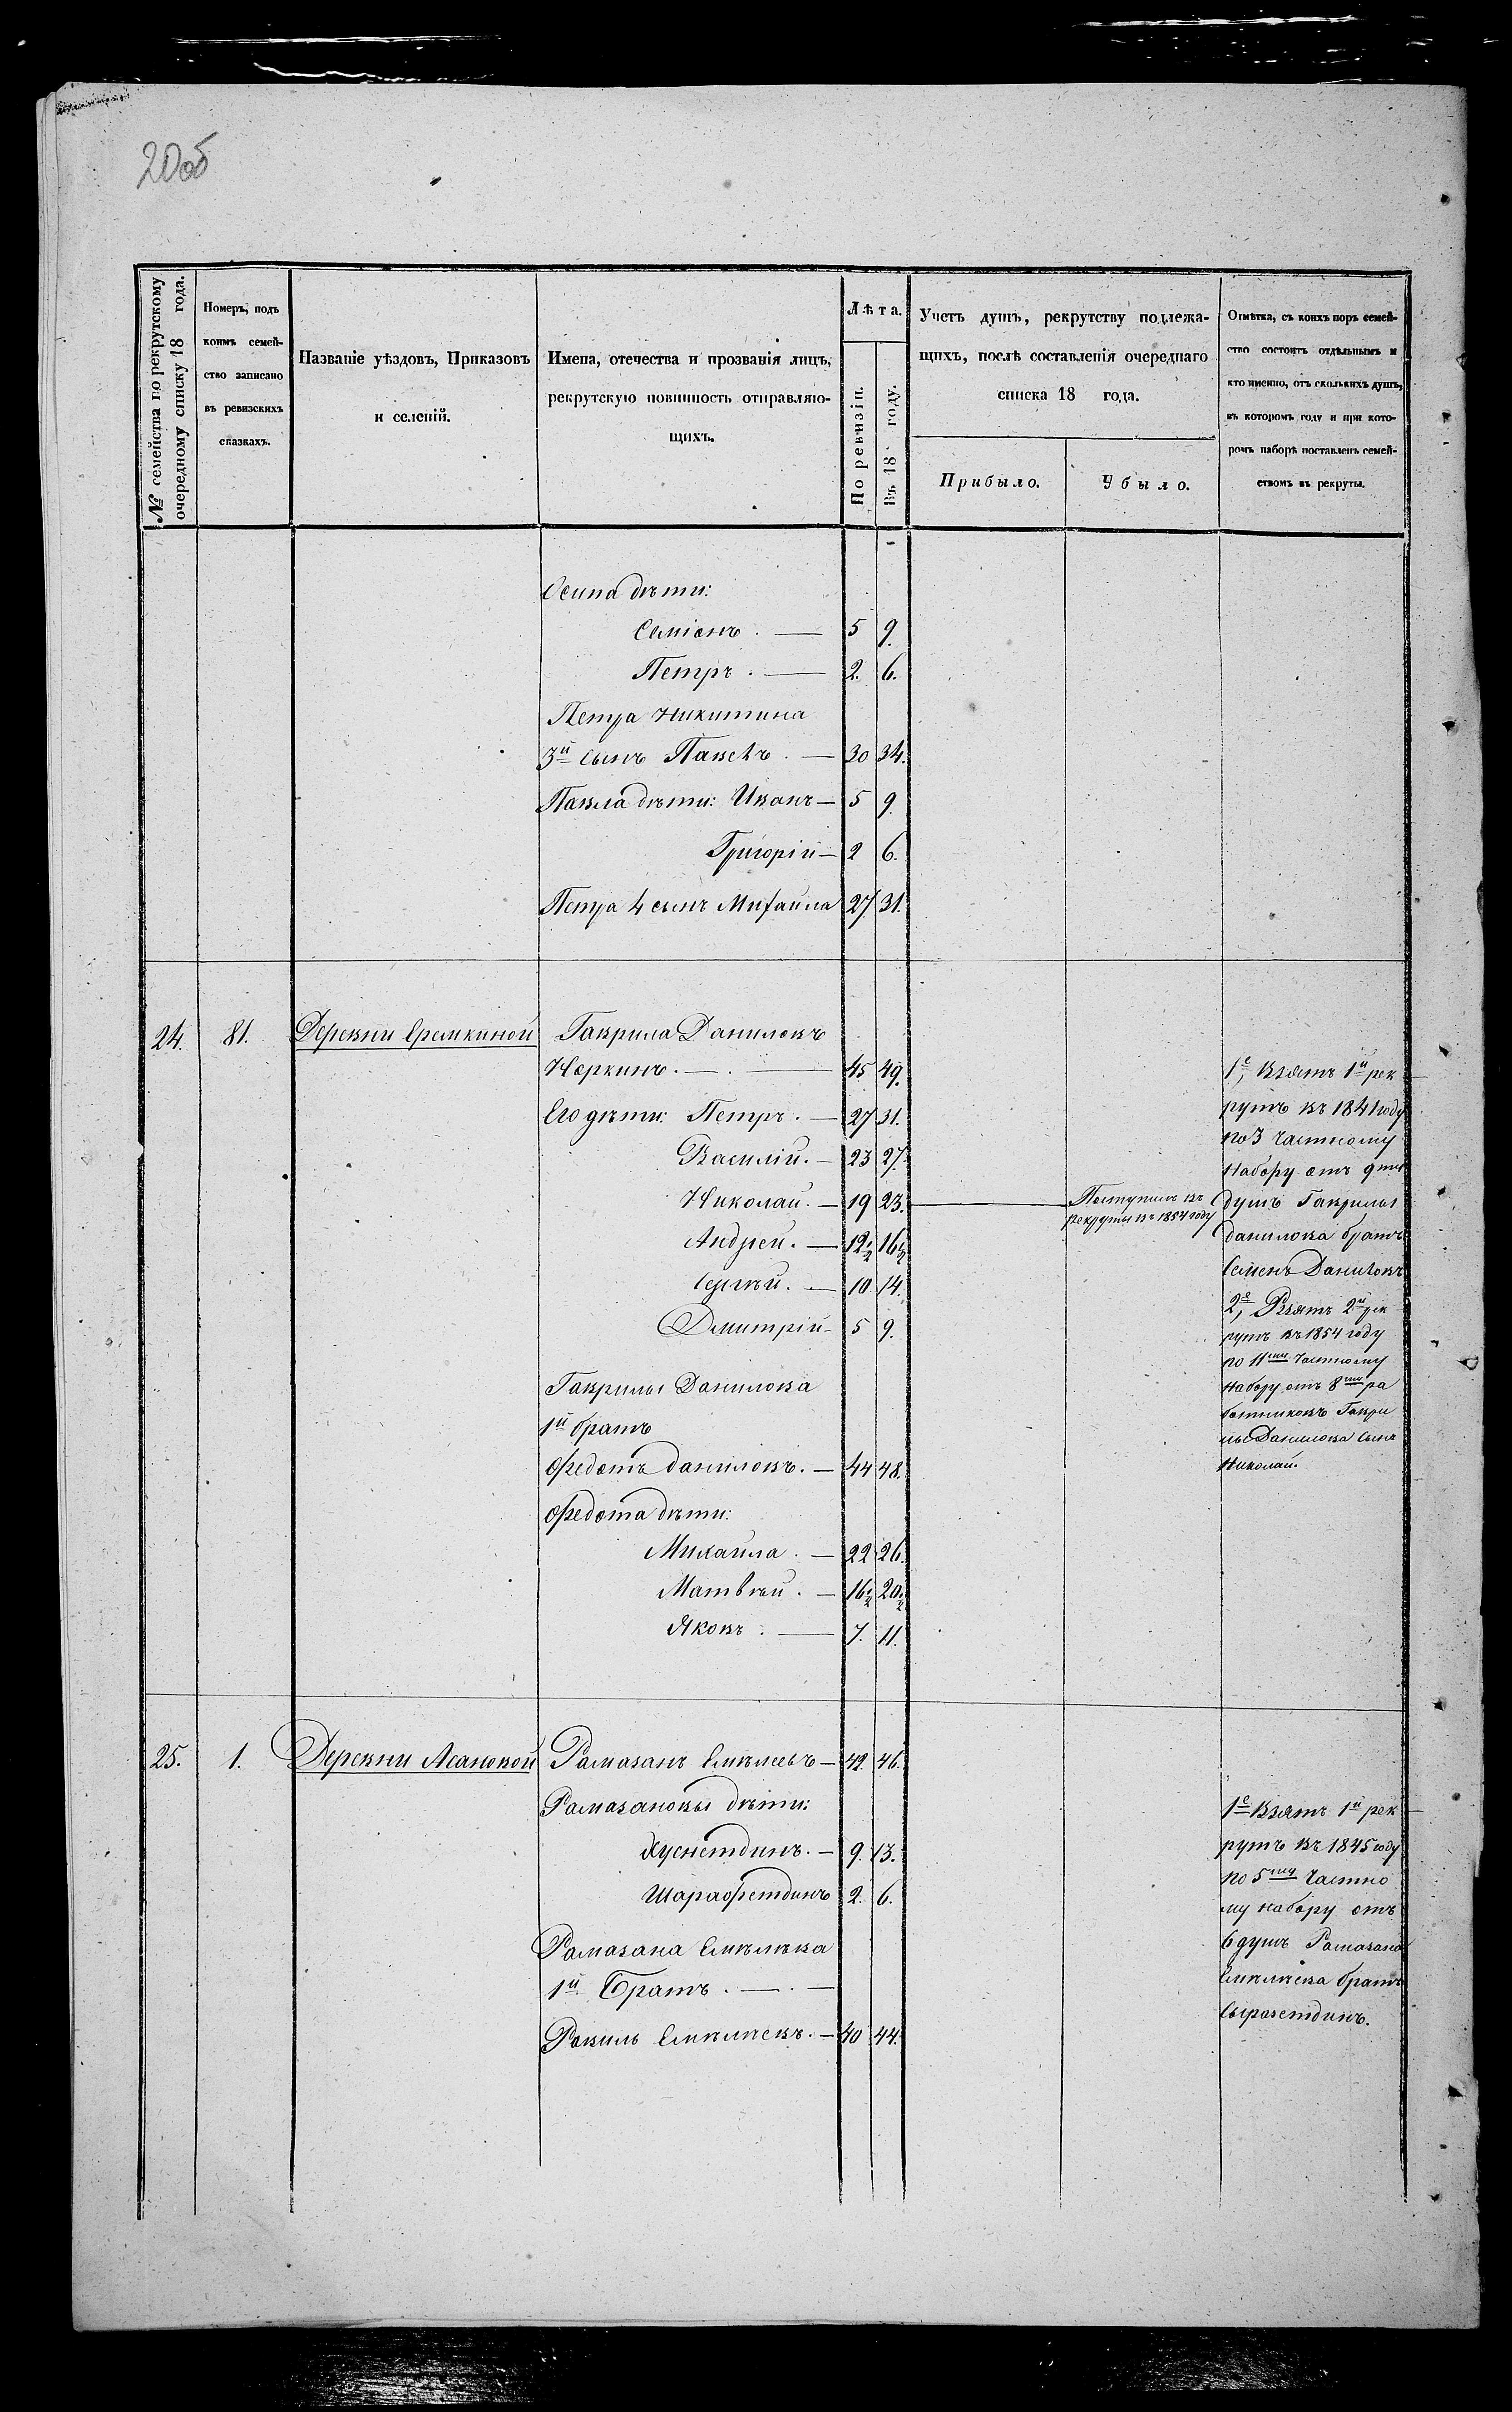 20об
№ семейства по рекрутскому очередному списку 18 года.
Номеръ, подъ коимъ семей-
ство записано въ ревизскихъ сказкахъ.
Названіе уѣздовъ, Приказовъ
и селеній.
Имена, отечества и прозванія лицъ,
рекрутскую повинность отправляю-
щихъ.
Лѣта.
По ревизіи.
Въ 18 году.
Учетъ душъ, рекрутству подлежа-
щихъ, послѣ составленія очереднаго
списка 18 года.
Прибыло.
Убыло.
Отмѣтка, съ коихъ поръ семей-
ство состоитъ отдѣльнымъ и
кто именно, отъ сколькихъ душъ,
въ которомъ году и при кото-
ромъ наборѣ поставленъ семей-
ствомъ въ рекруты.
Осипа дѣти:
Семіонъ. — 5 9.
Петръ. — 2. 6.
Петра Никитина
3й сынъ Павелъ. — 30 34.
Павла дѣти: Иванъ — 5 9
Григорій — 2 6.
Петра 4 сынъ Михаила 27 31.
24. 81. Деревни Еремкиной Гаврила Даниловъ
Чоркинъ. — 45 49.
Его дѣти: Петръ. — 27 31.
Василій. — 23 27.
Николай. — 19 23. Поступилъ въ
рекруты въ 1854 году
Андрей. — 12½ 16½
Сергѣй. — 10. 14.
Дмитрій — 5 9.
Гаврилы Данилова
1й братъ
Федотъ Даниловъ. — 44 48.
Федота дѣти:
Михаила. — 22 26.
Матвѣй. — 16½ 20½
Яковъ. — 7. 11.
1е, Взятъ 1й рек
рутъ въ 1841 году
по 3 частному
набору отъ 9ти
душъ Гаврилы
Данилова братъ
Семенъ Даниловъ
2е, Взятъ 2й рек
рутъ въ 1854 году
по 11му частному
набору отъ 8ми ра
ботниковъ Гаври
лы Данилова сынъ
Николай.
25. 1. Деревни Асановой Рамазанъ Емѣлеевъ — 42. 46.
Рамазановы дѣти:
Хуснетдинъ. — 9. 13.
Шарафетдинъ 2. 6.
Рамазана Емѣлѣва
1й Братъ. —
Равиль Емѣлѣевъ. — 40 44.
1е Взятъ 1й рек
рутъ въ 1845 году
по 5му частно
му набору отъ
6 душъ Рамазана
Емѣлѣева братъ
Сыразетдинъ.